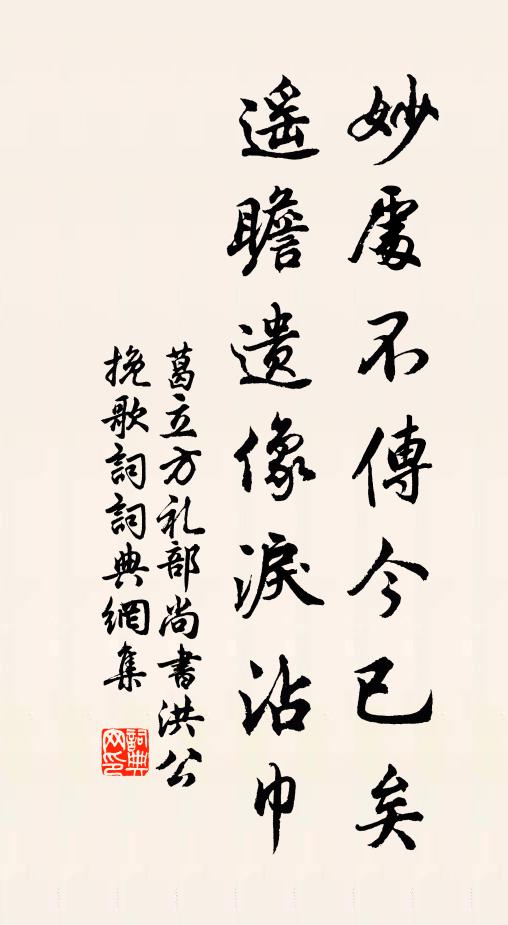 妙處不傳今已矣
遥瞻遺像淚沾巾
葛立方礼部尚書洪公
挽歌詞詞典網集
詞典
网印